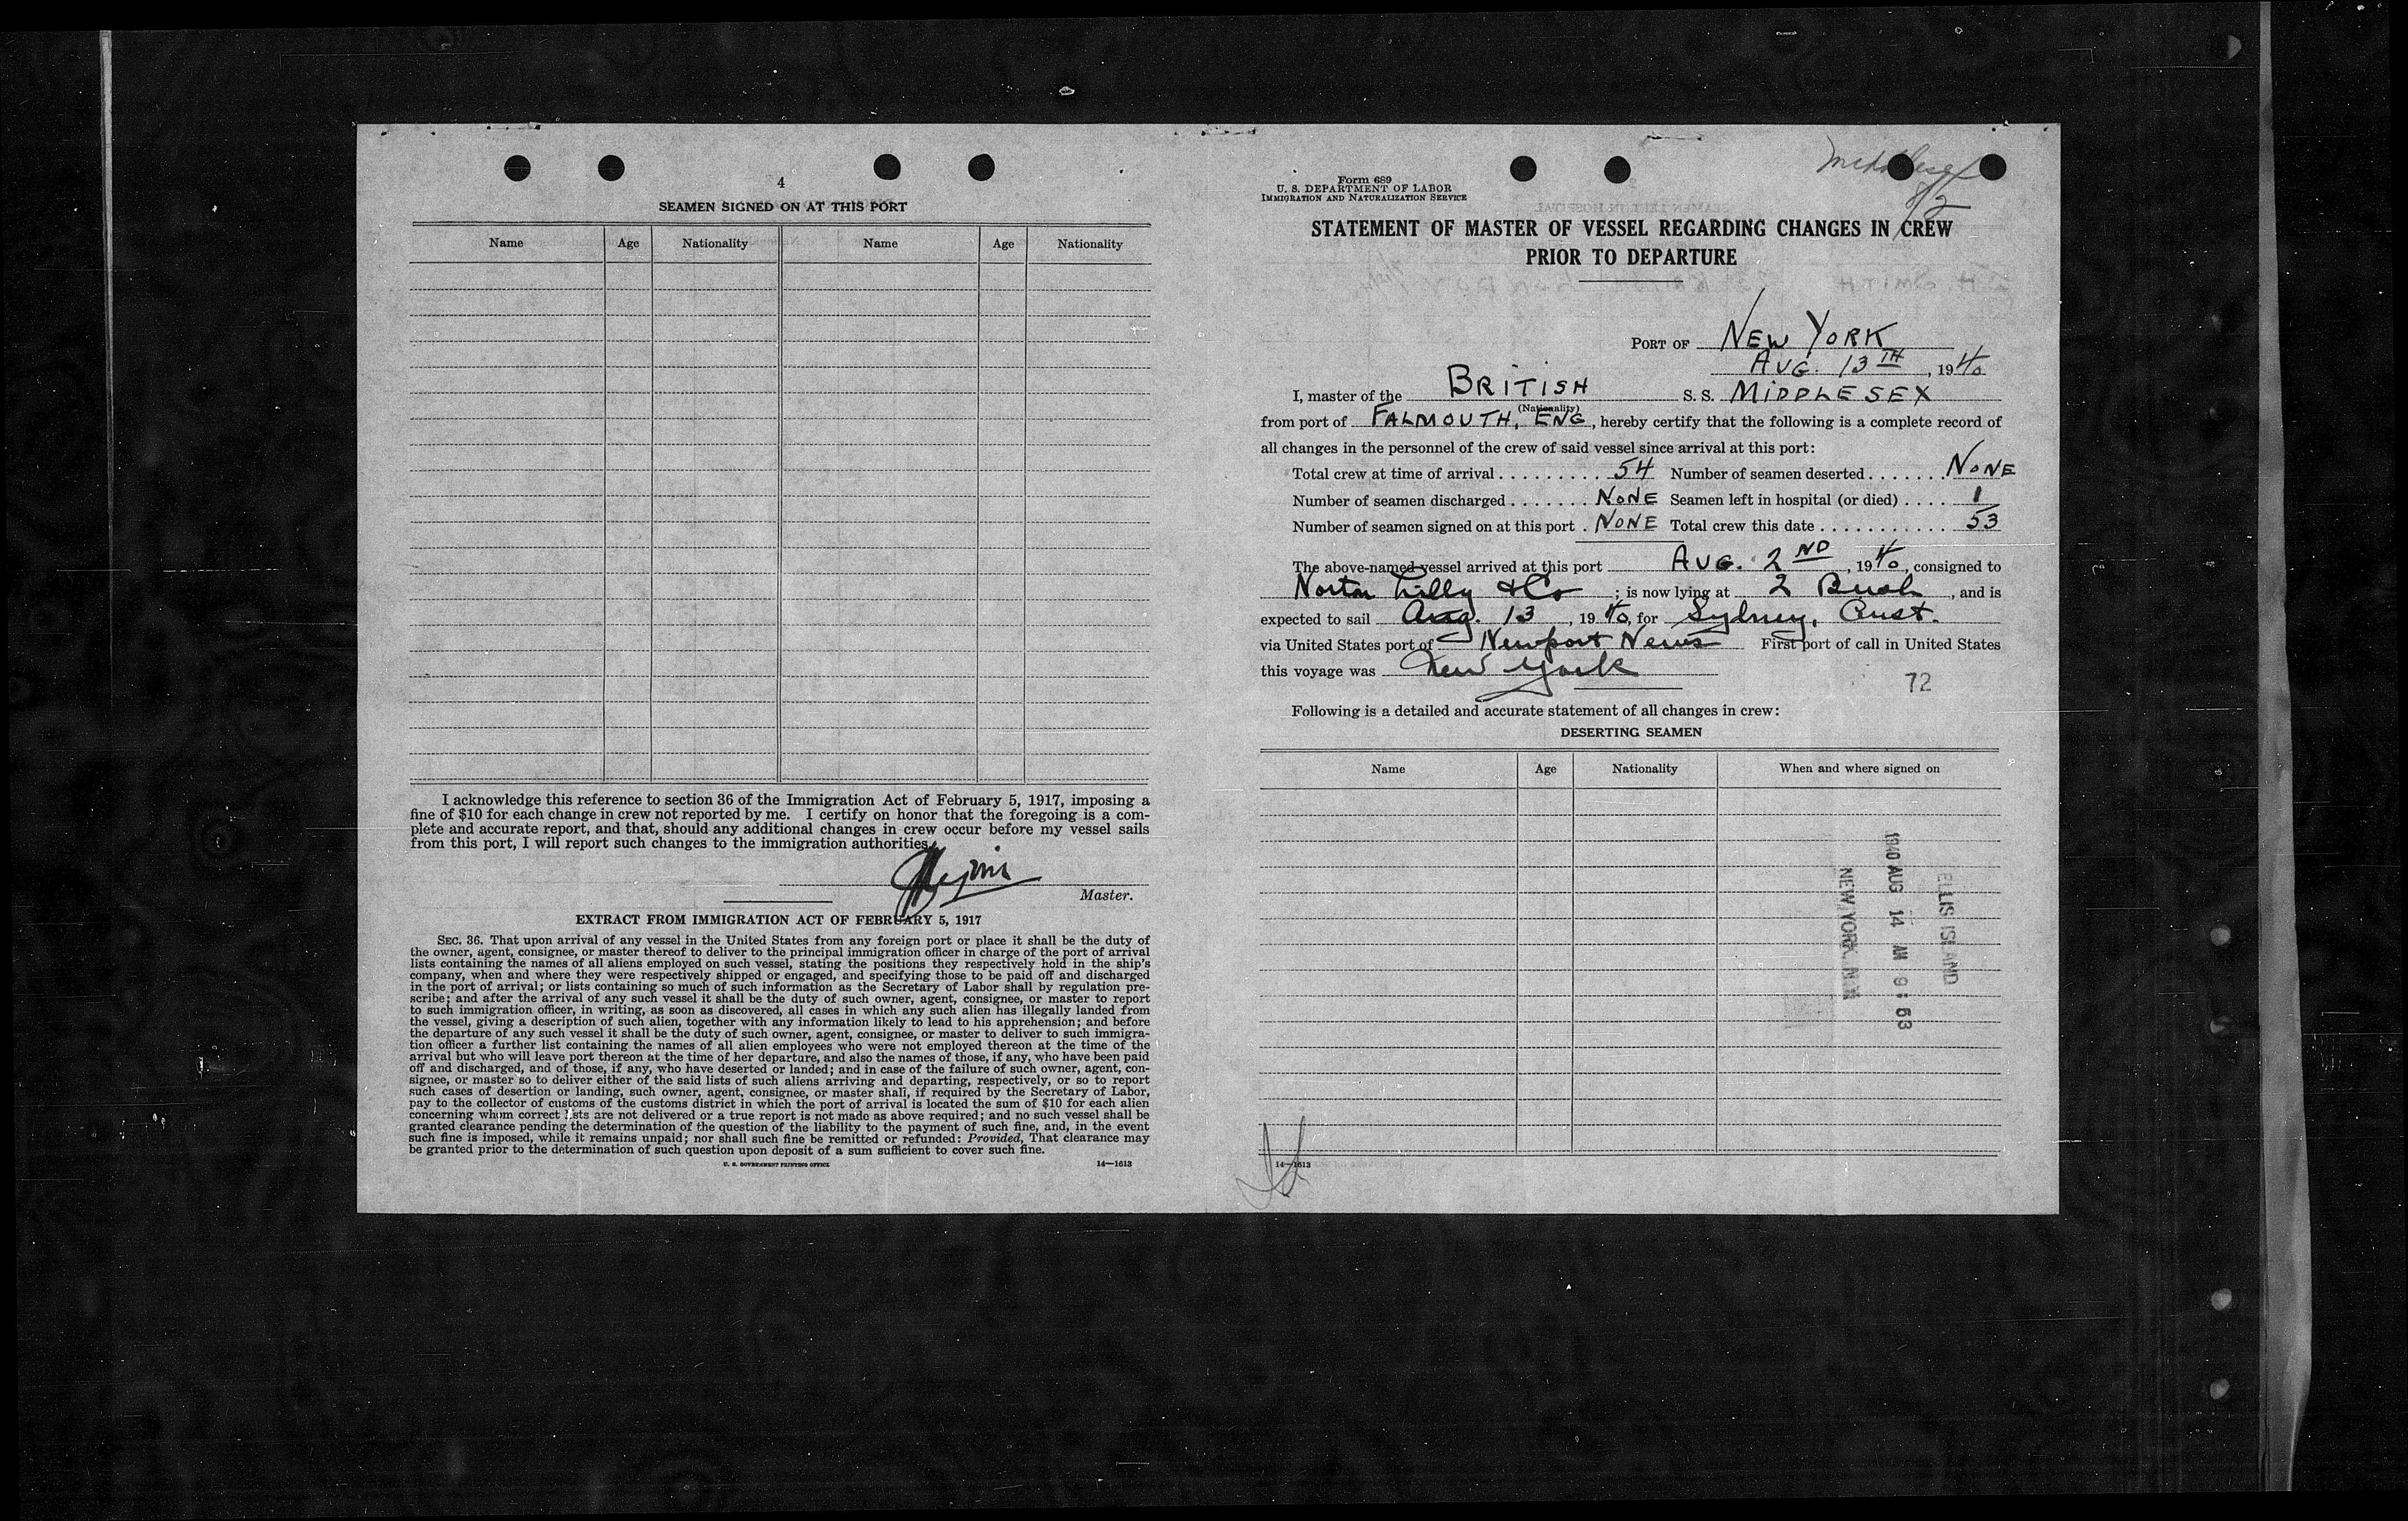 4
SEAMEN SIGNED ON AT THIS PORT
Name Age Nationality Name Age Nationality
I acknowledge this reference to section 36 of the Immigration Act of February 5, 1917, imposing a
fine of $10 for each change in crew not reported by me. I certify on honor that the foregoing is a com-
plete and accurate report, and that, should any additional changes in crew occur before my vessel sails
from this port, I will report such changes to the immigration authorities.
Master.
EXTRACT FROM IMMIGRATION ACT OF FEBRUARY 5, 1917
SEC. 36. That upon arrival of any vessel in the United States from any foreign port or place it shall be the duty of
the owner, agent, consignee, or master thereof to deliver to the principal immigration officer in charge of the port of arrival
lists containing the names of all aliens employed on such vessel, stating the positions they respectively hold in the ship's
company, when and where they were respectively shipped or engaged, and specifying those to be paid off and discharged
in the port of arrival; or lists containing so much of such information as the Secretary of Labor shall by regulation pre-
scribe; and after the arrival of any such vessel it shall be the duty of such owner, agent, consignee, or master to report
to such immigration officer, in writing, as soon as discovered, all cases in which any such alien has illegally landed from
the vessel, giving a description of such alien, together with any information likely to lead to his apprehension; and before
the departure of any such vessel it shall be the duty of such owner, agent, consignee, or master to deliver to such immigra-
tion officer a further list containing the names of all alien employees who were not employed thereon at the time of the
arrival but who will leave port thereon at the time of her departure, and also the names of those, if any, who have been paid
off and discharged, and of those, if any, who have deserted or landed; and in case of the failure of such owner, agent, con-
signee, or master so to deliver either of the said lists of such aliens arriving and departing, respectively, or so to report
such cases of desertion or landing, such owner, agent, consignee, or master shall, if required by the Secretary of Labor,
pay to the collector of customs of the customs district in which the port of arrival is located the sum of $10 for each alien
concerning whom correct lists are not delivered or a true report is not made as above required; and no such vessel shall be
granted clearance pending the determination of the question of the liability to the payment of such fine, and, in the event
such fine is imposed, while it remains unpaid; nor shall such fine be remitted or refunded: Provided, That clearance may
be granted prior to the determination of such question upon deposit of a sum sufficient to cover such fine.
U. S. GOVERNMENT PRINTING OFFICE 14—1613
Middlesex
8/2
Form 689
U. S. DEPARTMENT OF LABOR
IMMIGRATION AND NATURALIZATION SERVICE
STATEMENT OF MASTER OF VESSEL REGARDING CHANGES IN CREW
PRIOR TO DEPARTURE
PORT OF NEW YORK
AUG. 13TH, 1940
I, master of the BRITISH S. S. MIDDLESEX
(Nationality)
from port of FALMOUTH, ENG, hereby certify that the following is a complete record of
all changes in the personnel of the crew of said vessel since arrival at this port:
Total crew at time of arrival . . . . . . . . . 54 Number of seamen deserted . . . . . . . NONE
Number of seamen discharged . . . . . . . NONE Seamen left in hospital (or died) . . . . 1
Number of seamen signed on at this port . NONE Total crew this date . . . . . . . . . . . . 53
The above-named vessel arrived at this port AUG. 2ND, 1940, consigned to
Norton Lilly & Co ; is now lying at 2 Bush, and is
expected to sail Aug. 13, 1940, for Sydney, Aust.
via United States port of Newport News First port of call in United States
this voyage was New York
72
Following is a detailed and accurate statement of all changes in crew:
DESERTING SEAMEN
Name Age Nationality When and where signed on
ELLIS ISLAND
1940 AUG 14 AM 9:53
NEW YORK, N.Y.
14—1613